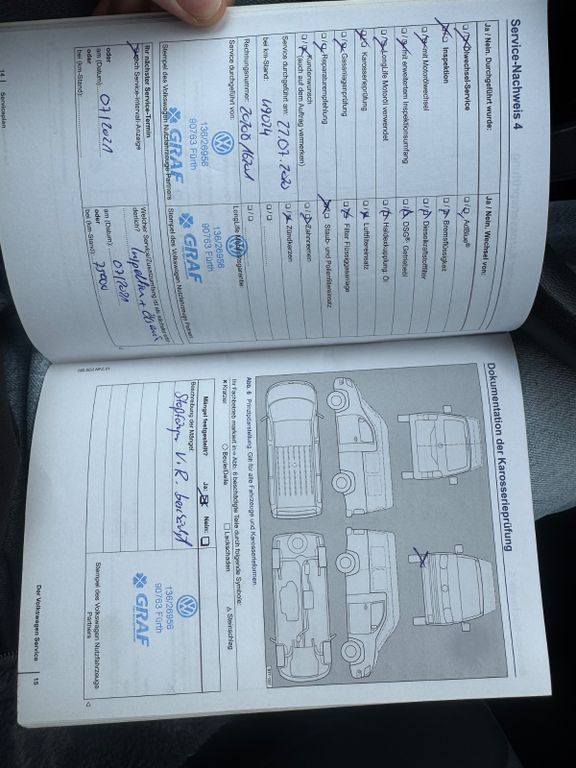 Service-Nachweis 4
Ja / Nein. Durchgeführt wurde:
Ölwechsel-Service
Inspektion
mit Motorölwechsel
mit erweitertem Inspektionsumfang
LongLife Motoröl verwendet
Karosserieprüfung
Gasanlagenprüfung
Reparaturempfehlung
Kundenwunsch
(auch auf dem Auftrag vermerken)
Service durchgeführt am: 27.07.2020
bei km-Stand:
Rechnungsnummer:
Service durchgeführt von:
136/26956
90763 Fürth
GRAF
Stempel des Volkswagen Nutzfahrzeuge Partners
Ihr nächster Service-Termin
nach Service-Intervall-Anzeige
oder
am (Datum): 07/2021
oder
bei (km-Stand):
14 | Serviceplan
Ja / Nein. Wechsel von:
AdBlue®
Bremsflüssigkeit
Dieselkraftstofffilter
DSG®: Getriebeöl
Haldexkupplung: Öl
Luftfiltereinsatz
Filter Flüssiggasanlage
Staub- und Pollenfiltereinsatz
Zahnriemen
Zündkerzen
LongLife Mobilitätsgarantie:
136/26956
90763 Fürth
GRAF
Stempel des Volkswagen Nutzfahrzeuge Partners
Welcher Service/Zusatzumfang ist als nächster erforderlich?
am (Datum): 07/2021
oder
bei (km-Stand): 75000
Dokumentation der Karosserieprüfung
Abb. 6 Prinzipdarstellung: Gilt für alle Fahrzeuge und Karosserieformen.
Ihr Fachbetrieb markiert in ⇒ Abb. 6 beschädigte Teile durch folgende Symbole:
× Kratzer
○ Beule/Delle
□ Lackschaden
△ Steinschlag
Mängel festgestellt? Ja: Nein:
Beschreibung der Mängel:
136/26956
90763 Fürth
GRAF
Stempel des Volkswagen Nutzfahrzeuge
Partners
Der Volkswagen Service | 15